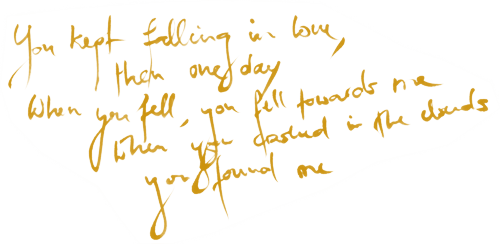 You kept falling in love,
then one day
When you fell, you fell towards me
When you dashed in the clouds
you found me